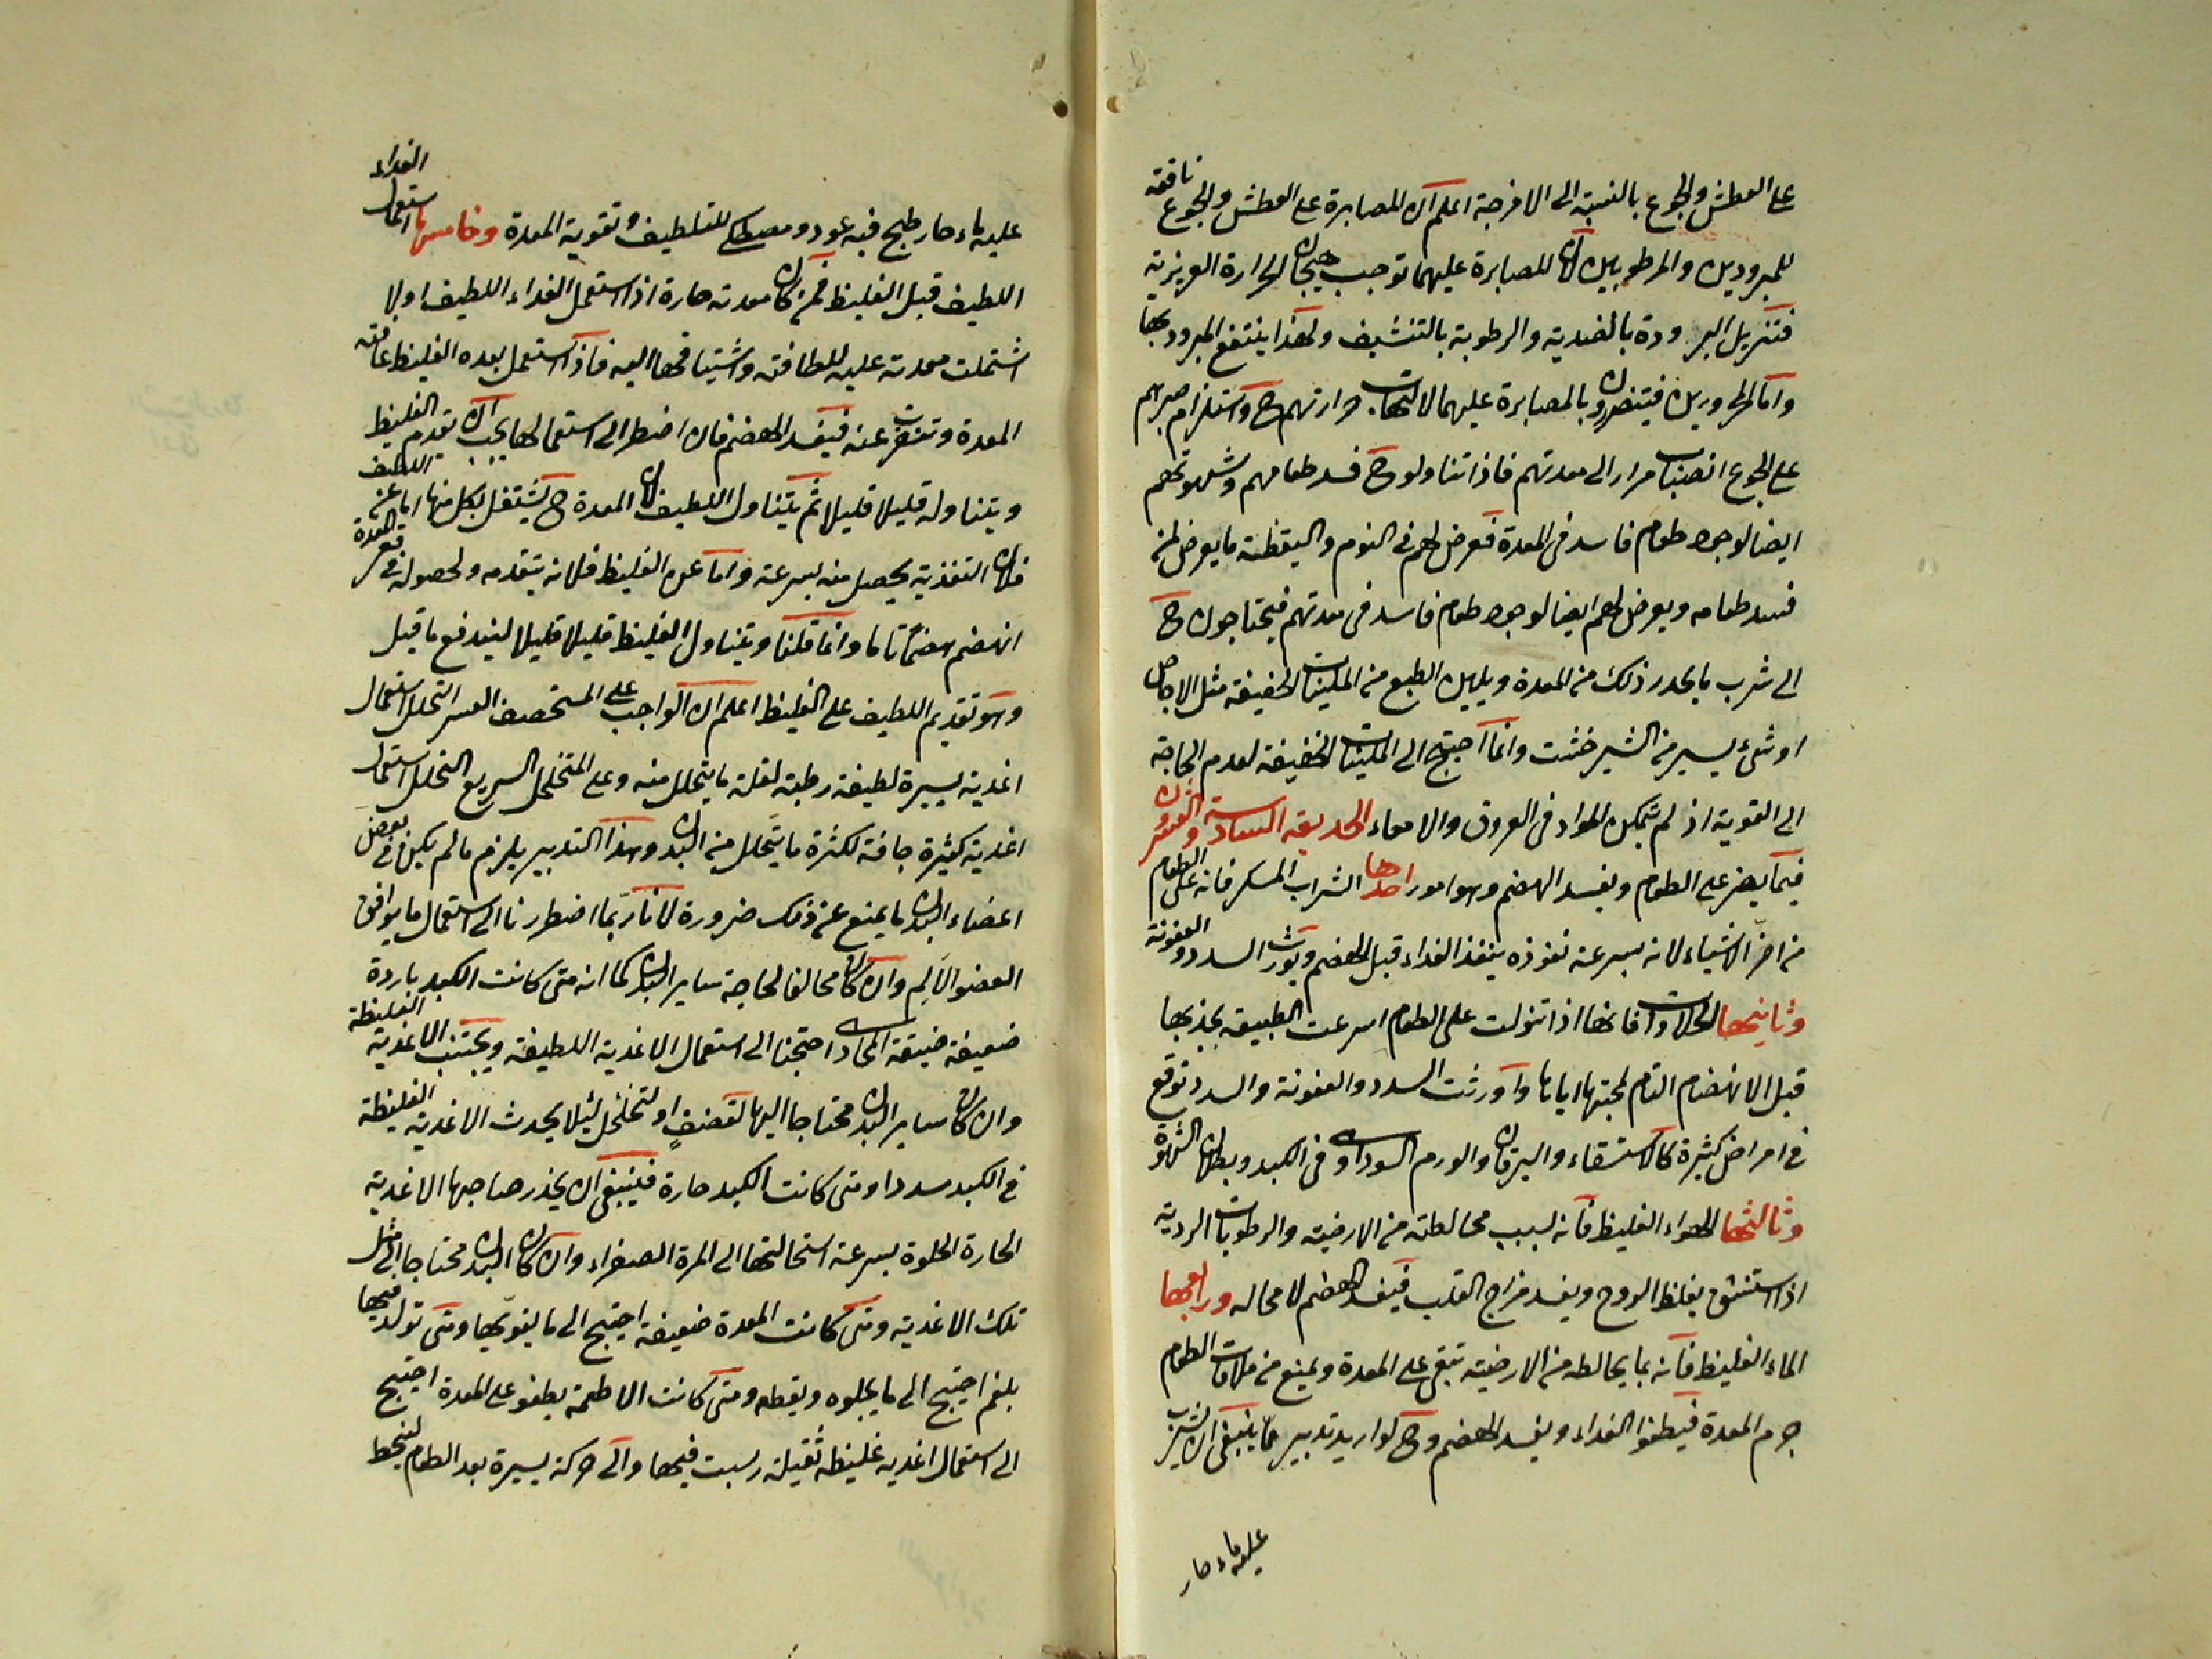 على العطش والجوع بالنسبة الى الامزجة اعلم ان المصابرة على العطش والجوع نافعة
للمبرودين والمرطوبين لان المصابرة عليهما توجب هيجان الحرارة الغريزية
فتزيل البرودة بالضدية والرطوبة بالتنشيف ولهذا ينتفع المبرود بها
واما المحرورين فيتضررون بالمصابرة عليهما لالتهاب حرارتهم ح واستلزام صبرهم
على الجوع انصباب مرار الى معدتهم فاذا تناولوا ح فسد طعامهم وشهوتهم
ايضا لوجود طعام فاسد فى المعدة فعرض لهم فى النوم واليقظة ما يعرض لمن
فسد طعامه ويعرض لهم ايضا لوجود طعام فاسد فى معدتهم فيحتاجون ح
الى شرب ما يحدر ذلك من المعدة ويلين الطبع من الملينات الخفيفة مثل الاجاص
او شىء يسير من الشيرخشت وانما احتيج الى الملينات الخفيفة لعدم الحاجة
الى القوية اذ لم تتمكن المواد فى العروق والامعاء الحديقة السادسة والعشرون
فيما يضر على الطعام ويفسد الهضم وهو امور احدها الشراب المسكر فانه على الطعام
من اضر الاشياء لانه بسرعة نفوذه ينفذ الغداء قبل الهضم ويورث السدد والعفونة
وثانيها الحلاوات فانها اذا تنولت على الطعام اسرعت الطبيعة بجذبها
قبل الانهضام التام لمحبتها اياها واورثت السدد والعفونة والسدد توقع
فى امراض كثيرة كالاستسقاء واليرقان والورم السوداوى فى الكبد وبطلان الشهوة
وثالثها الهواء الغليظ فانه لسبب مخالطته من الارضية والرطوبات الردية
اذا استنشق يغلظ الروح ويفسد مزاج القلب فيفسد الهضم لا محاله ورابعها
الماء الغليظ فانه بما يخالطه من الارضية تبقى على المعدة ويمنع من ملاقات الطعام
جرم المعدة فيطفوا الغداء ويفسد الهضم وح لو اريد تدبير ما ينبغى ان يشرب
عليه ماء حار
عليه ماء حار طبخ فيه عود ومصطكى للتلطيف وتقوية المعدة وخامسها استعمال الغداء
اللطيف قبل الغليظ فمن كان معدته حارة اذا استعمل الغداء اللطيف اولا
اشتملت معدته عليه للطافته واشتياقها اليه فاذا استعمل بعده الغليظ عافته
المعدة وتنفرت عنه فيفسد الهضم فان اضطر الى استعمالها يجب ان تقدم الغليظ
ويتناوله قليلا قليلا ثم يتناول اللطيف لان المعدة ح تشتغل بكل منها اما عن اللطيف
فلان التغذية يحصل منه بسرعة واما عن الغليظ فلانه يتقدمه ولحصوله فى قعر المعدة
انهضم هضمًا تاما وانما قلنا ويتناول الغليظ قليلا قليلا ليندفع ما قيل
وهو تقديم اللطيف على الغليظ اعلم ان الواجب على المستحصف العسر التحلل استعمال
اغدية يسيرة لطيفة رطبة لقلة ما يتحلل منه وعلى المتخلخل السريع التحلل استعمال
اغدية كثيرة جافة لكثرة ما يتحلل من البدن وهذا التدبير يلزم ما لم يكن فى بعض
اعضاء البدن ما يمنع عن ذلك ضرورة لانا ربما اضطررنا الى استعمال ما يوافق
العضو الالم وان كان مخالفا لحاجة ساير البدن كما انه متى كانت الكبد باردة
ضعيفة ضيقة المجارى احتجنا الى استعمال الاغدية اللطيفة ويجتنب الاغدية الغليظة
وان كان ساير البدن محتاجا اليها لتضف او لتخلخل لئلا يحدث الاغدية الغليظة
فى الكبد سددا ومتى كانت الكبد حارة فينبغى ان يحذر صاحبها الاغدية
الحارة الحلوة بسرعة استحالتها الى المرة الصفراء وان كان البدن محتاجا الى مثل
تلك الاغدية ومتى كانت المعدة ضعيفة احتيج الى ما يقويها ومتى تولد فيها
بلغم احتيج الى ما يجلوه ويقطعه ومتى كانت الاطعمة يطفو على المعدة احتيج
الى استعمال اغدية غليظة ثقيلة رسبت فيها والى حركة يسيرة بعد الطعام لينحط